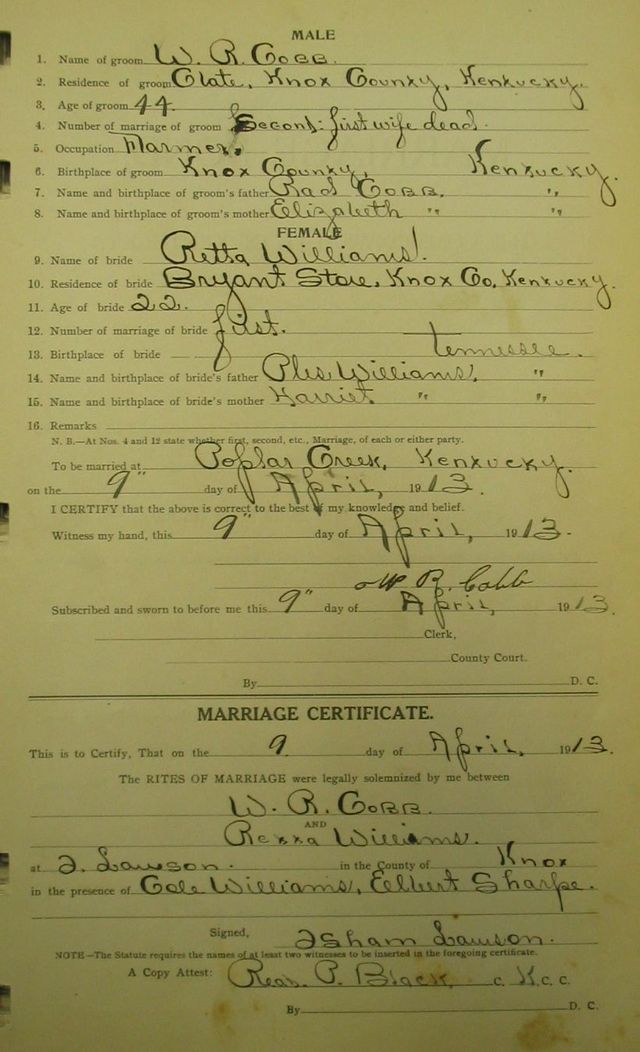 MALE
1. Name of groom W. R. Cobb.
2. Residence of groom Clate, Knox County, Kentucky.
3. Age of groom 44.
4. Number of marriage of groom Second: first wife dead.
5. Occupation Farmer.
6. Birthplace of groom Knox County, Kentucky.
7. Name and birthplace of groom's father Rad Cobb. "
8. Name and birthplace of groom's mother Elizabeth " "
FEMALE
9. Name of bride Retta Williams.
10. Residence of bride Bryant Store, Knox Co. Kentucky.
11. Age of bride 22.
12. Number of marriage of bride first.
13. Birthplace of bride Tennessee.
14. Name and birthplace of bride's father Ples Williams, "
15. Name and birthplace of bride's mother Harriet " "
16. Remarks
N. B.—At Nos. 4 and 12 state whether first, second, etc., Marriage, of each or either party.
To be married at Poplar Creek, Kentucky.
on the 9" day of April, 1913.
I CERTIFY that the above is correct to the best of my knowledge and belief.
Witness my hand, this 9" day of April, 1913.
W. R. Cobb
Subscribed and sworn to before me this 9" day of April, 1913.
Clerk,
County Court.
By D. C.
MARRIAGE CERTIFICATE.
This is to Certify, That on the 9 day of April, 1913.
The RITES OF MARRIAGE were legally solemnized by me between
W. R. Cobb.
AND
Retta Williams.
at I. Lawson. in the County of Knox
in the presence of Cale Williams, Elbert Sharpe.
Signed, Isham Lawson.
NOTE—The Statute requires the names of at least two witnesses to be inserted in the foregoing certificate.
A Copy Attest: Read P. Black, C. K. C. C.
By D. C.